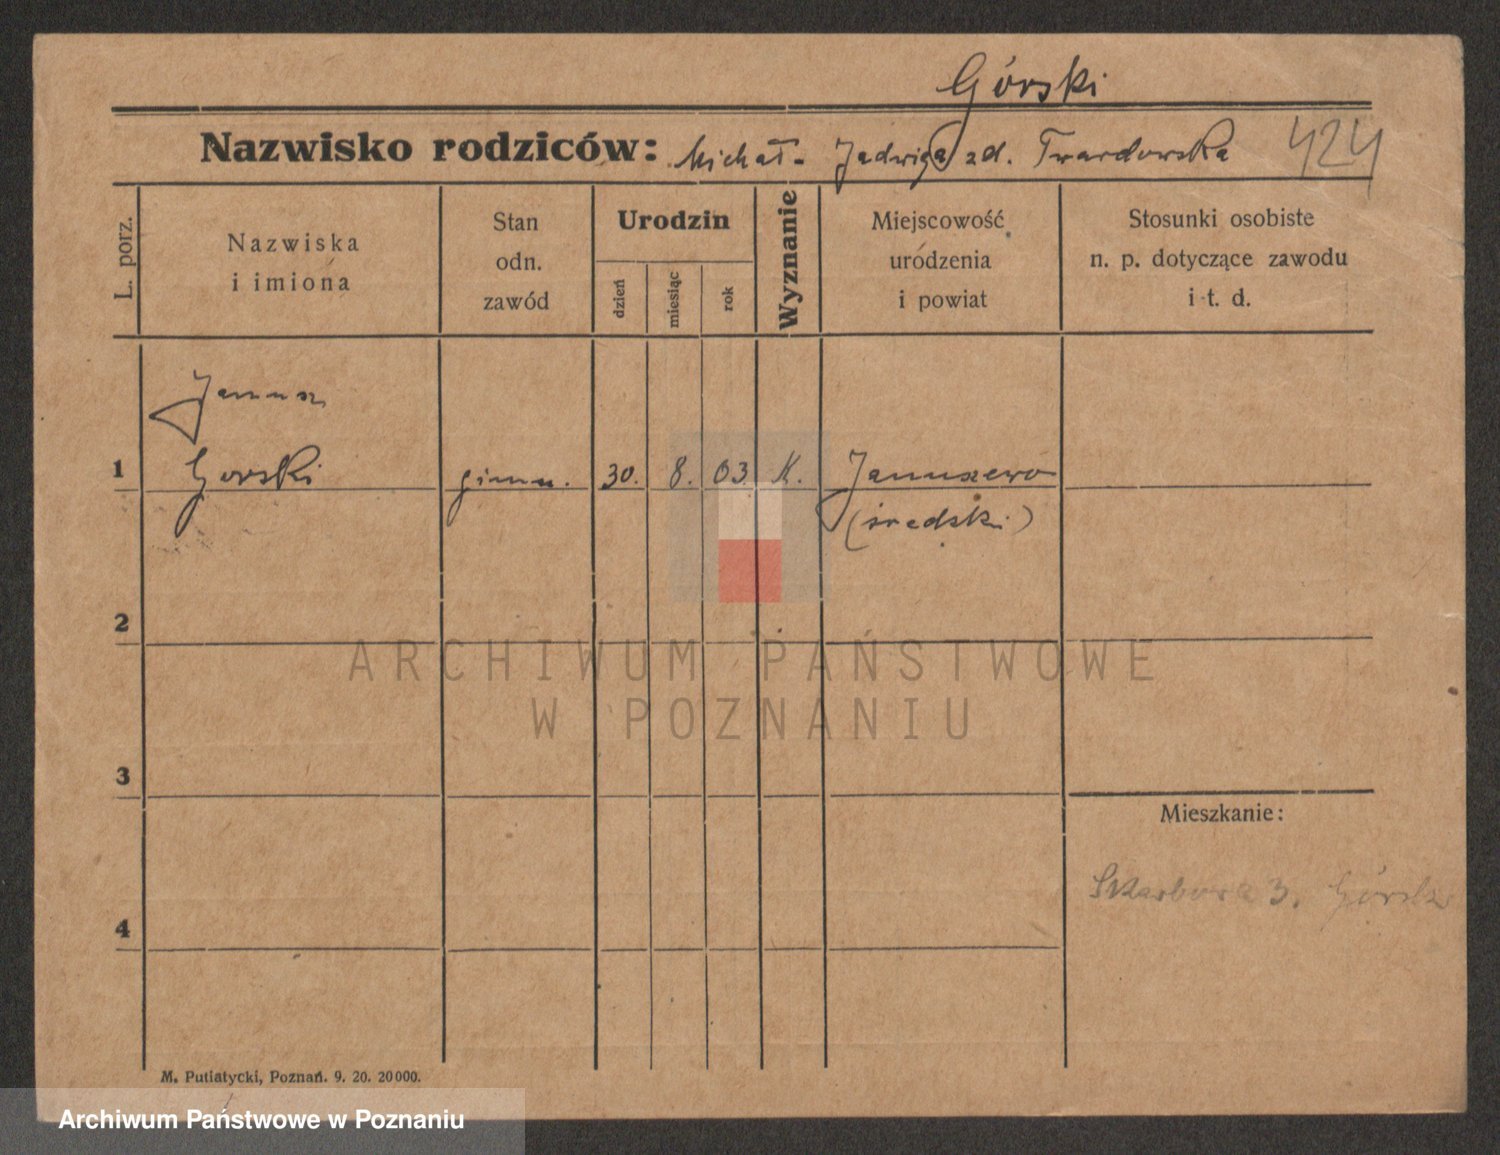 Górski
Nazwisko rodziców: Michał - Jadwiga zd. Twardowska 424
L. porz.
Nazwiska
i imiona
Stan
odn.
zawód
Urodzin
dzień
miesiąc
rok
Wyznanie
Miejscowość
urodzenia
i powiat
Stosunki osobiste
n. p. dotyczące zawodu
i t. d.
Janusz
1 Gorski gimn. 30. 8. 03 K. Januszewo
(średski)
2
ARCHIWUM PAŃSTWOWE
W POZNANIU
3
Mieszkanie:
Skarbowa 3.
4
M. Putiatycki, Poznań. 9. 20. 20000.
Archiwum Państwowe w Poznaniu